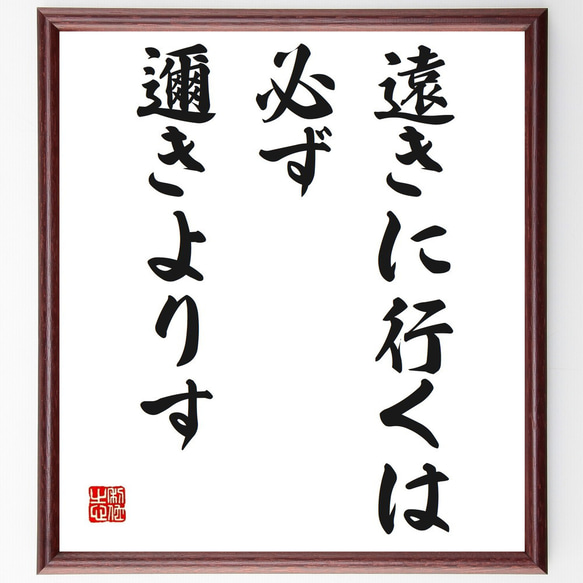 遠きに行くは
必ず
邇きよりす